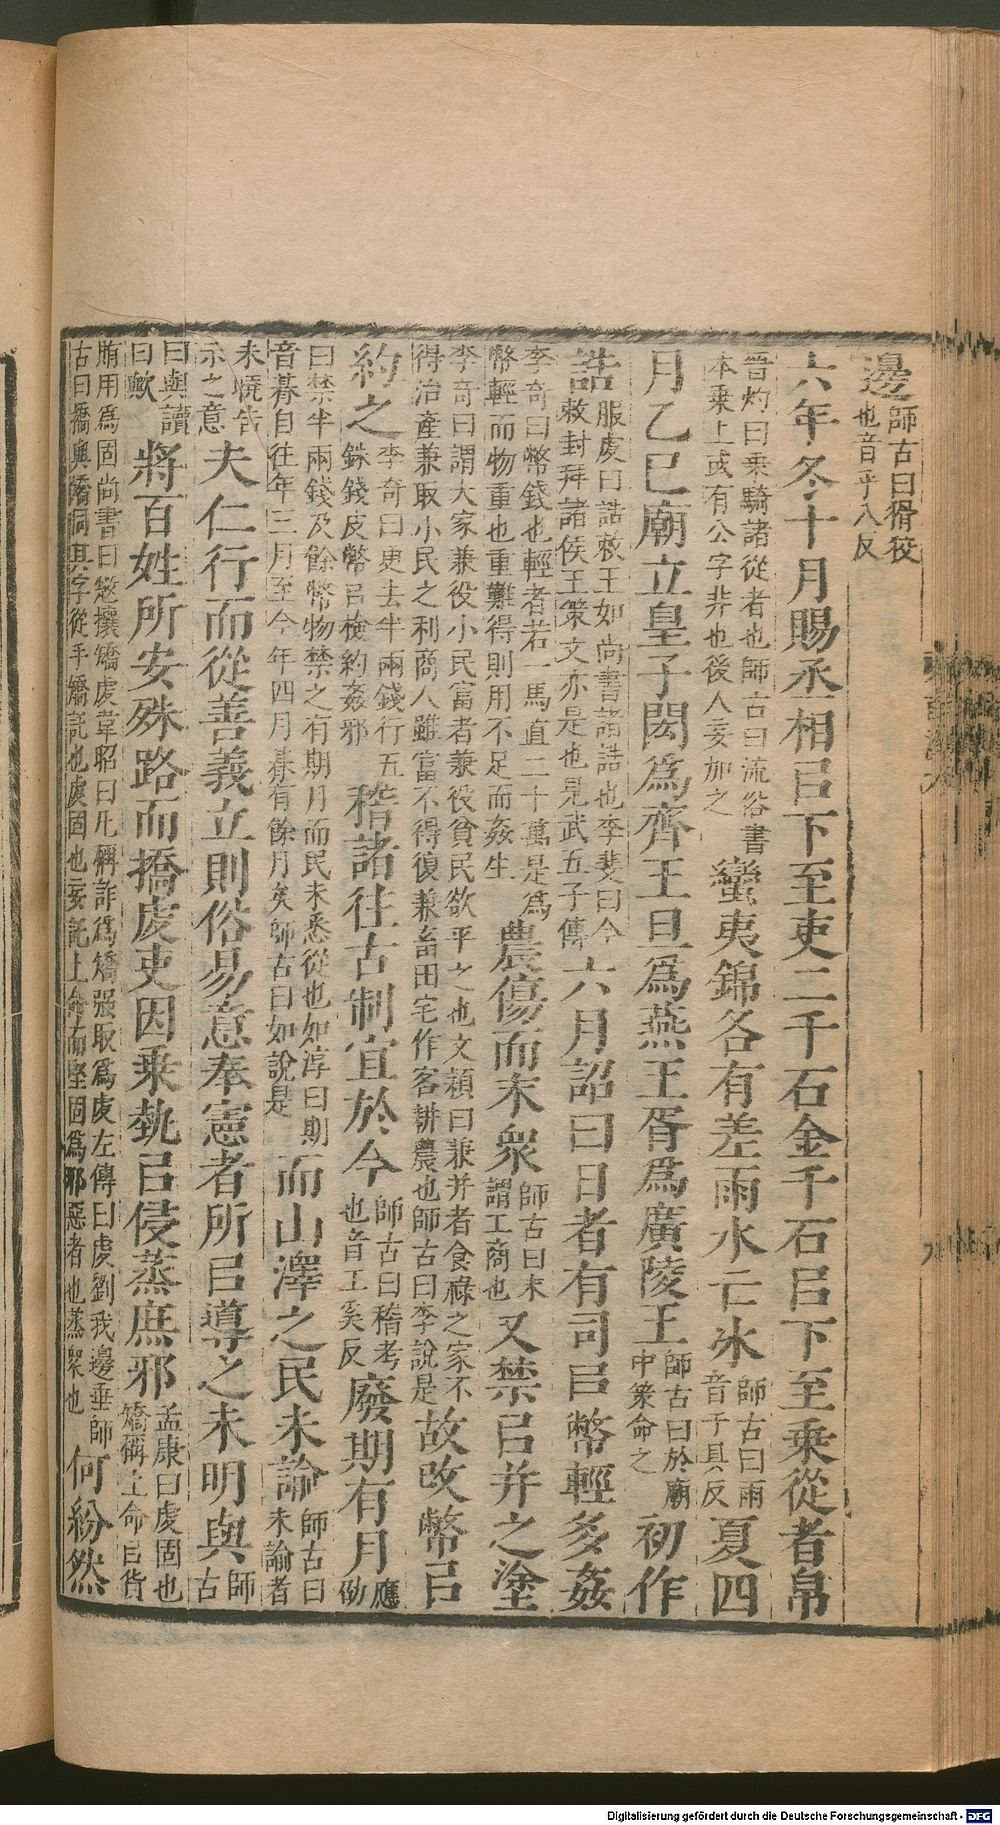 邊師古曰猾狡也音乎八反
六年冬十月賜丞相㠯下至吏二千石金千石㠯下至乗從者帛
晉灼曰乗騎諸從者也師古曰流俗書本乗上或有公字非也後人妄加之蠻夷錦各有差雨水亡冰師古曰雨音于具反夏四
月乙巳廟立皇子閎爲齊王旦爲燕王胥爲廣陵王師古曰於廟中策命之初作
誥服虔曰誥敕王如尚書諸誥也李斐曰今敕封拜諸侯王策文亦是也見武五子傳六月詔曰日者有司㠯幣輕多姦
李奇曰幣錢也輕者若一馬直二十萬是爲幣輕而物重也重難得則用不足而姦生農傷而末衆師古曰末謂工商也又禁㠯并之塗
李奇曰謂大家兼役小民富者兼役貧民欲平之也文穎曰兼并者食祿之家不得治產兼取小民之利商人雖富不得復兼畜田宅作客耕農也師古曰李說是故改幣㠯
約之李奇曰更去半兩錢行五銖錢皮幣㠯檢約姦邪稽諸往古制宜於今師古曰稽考也音工奚反廢期有月應劭
曰禁半兩錢及餘幣物禁之有期月而民未悉從也如淳曰期音朞自往年三月至今年四月朞有餘月矣師古曰如說是而山澤之民未諭師古曰未諭者
未曉告示之意夫仁行而從善義立則俗易意奉憲者所㠯導之未明與師古
曰與讀曰歟將百姓所安殊路而撟虔吏因乗埶㠯侵蒸庶邪孟康曰虔固也矯稱上命㠯貨
賄用爲固尚書曰敓攘矯虔韋昭曰凡稱詐爲矯強取爲虔左傳曰虔劉我邊垂師古曰撟與矯同其字從手矯託也虔固也妄託上命而堅固爲邪惡者也蒸衆也何紛然
Digitalisierung gefördert durch die Deutsche Forschungsgemeinschaft - DFG